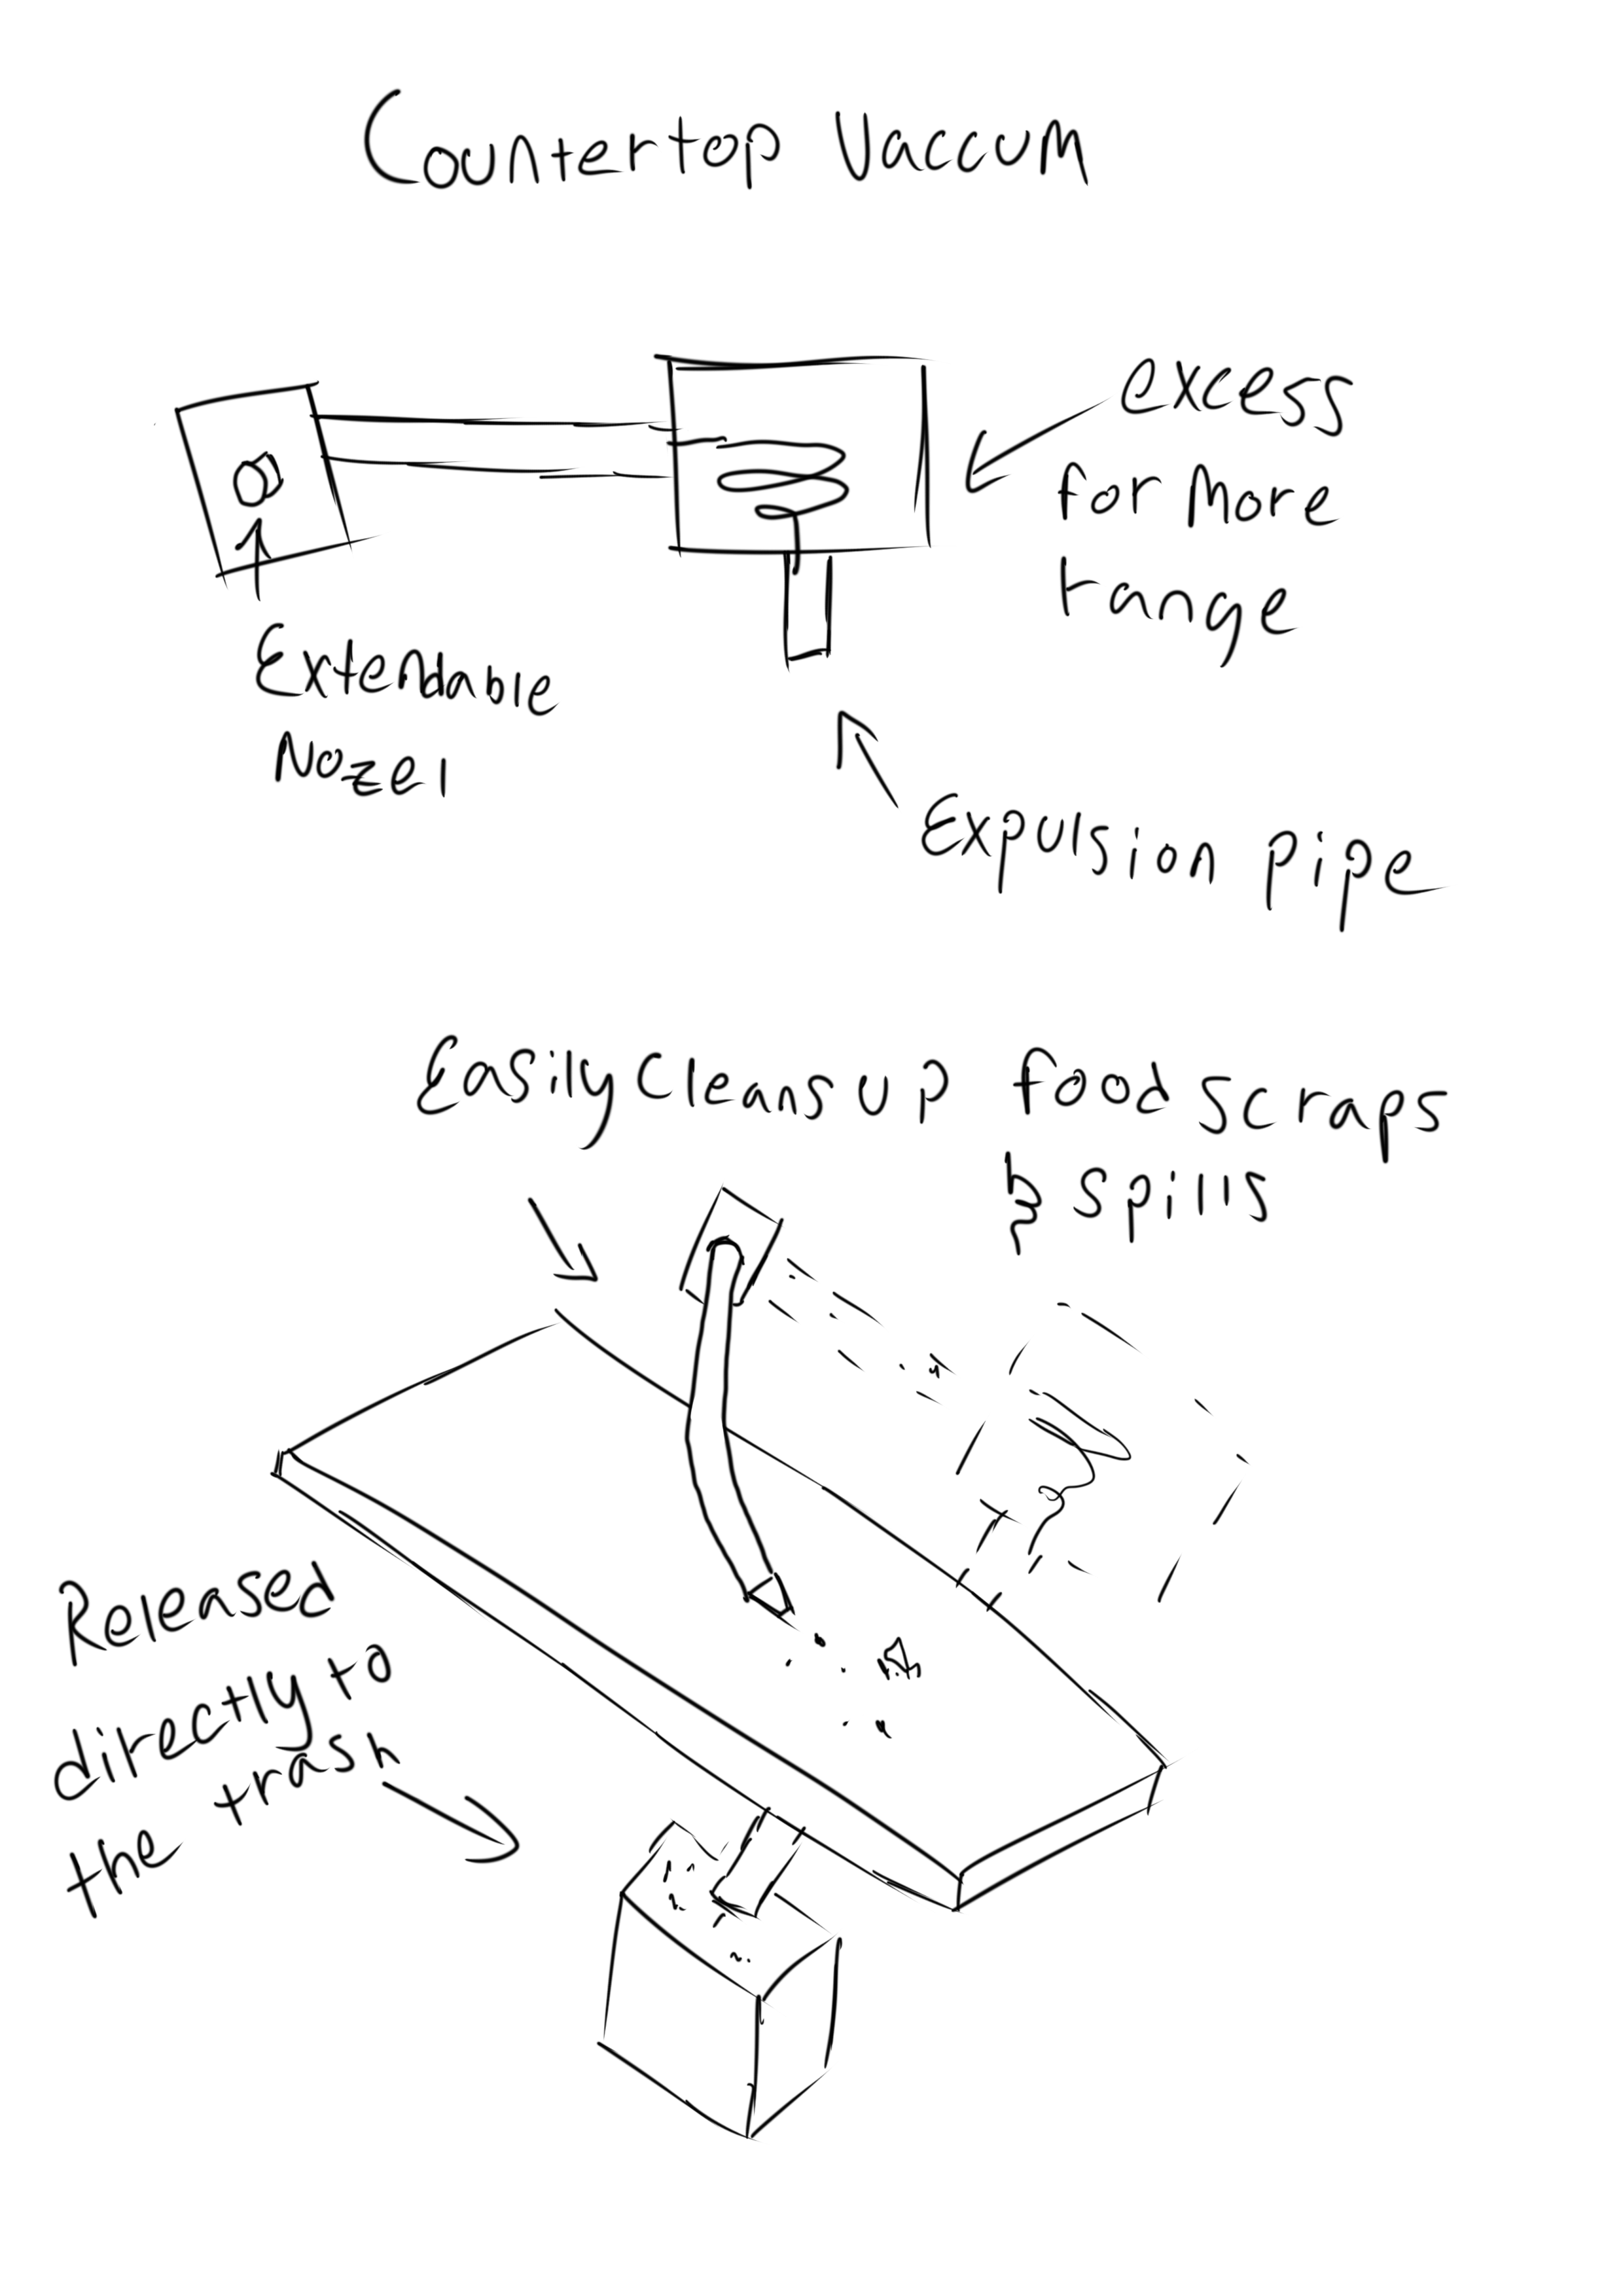 Countertop Vaccum
excess
for More
range
Extendable
Nozel
Expulsion pipe
Easily cleans up food scraps
& spills
Released
directly to
the trash